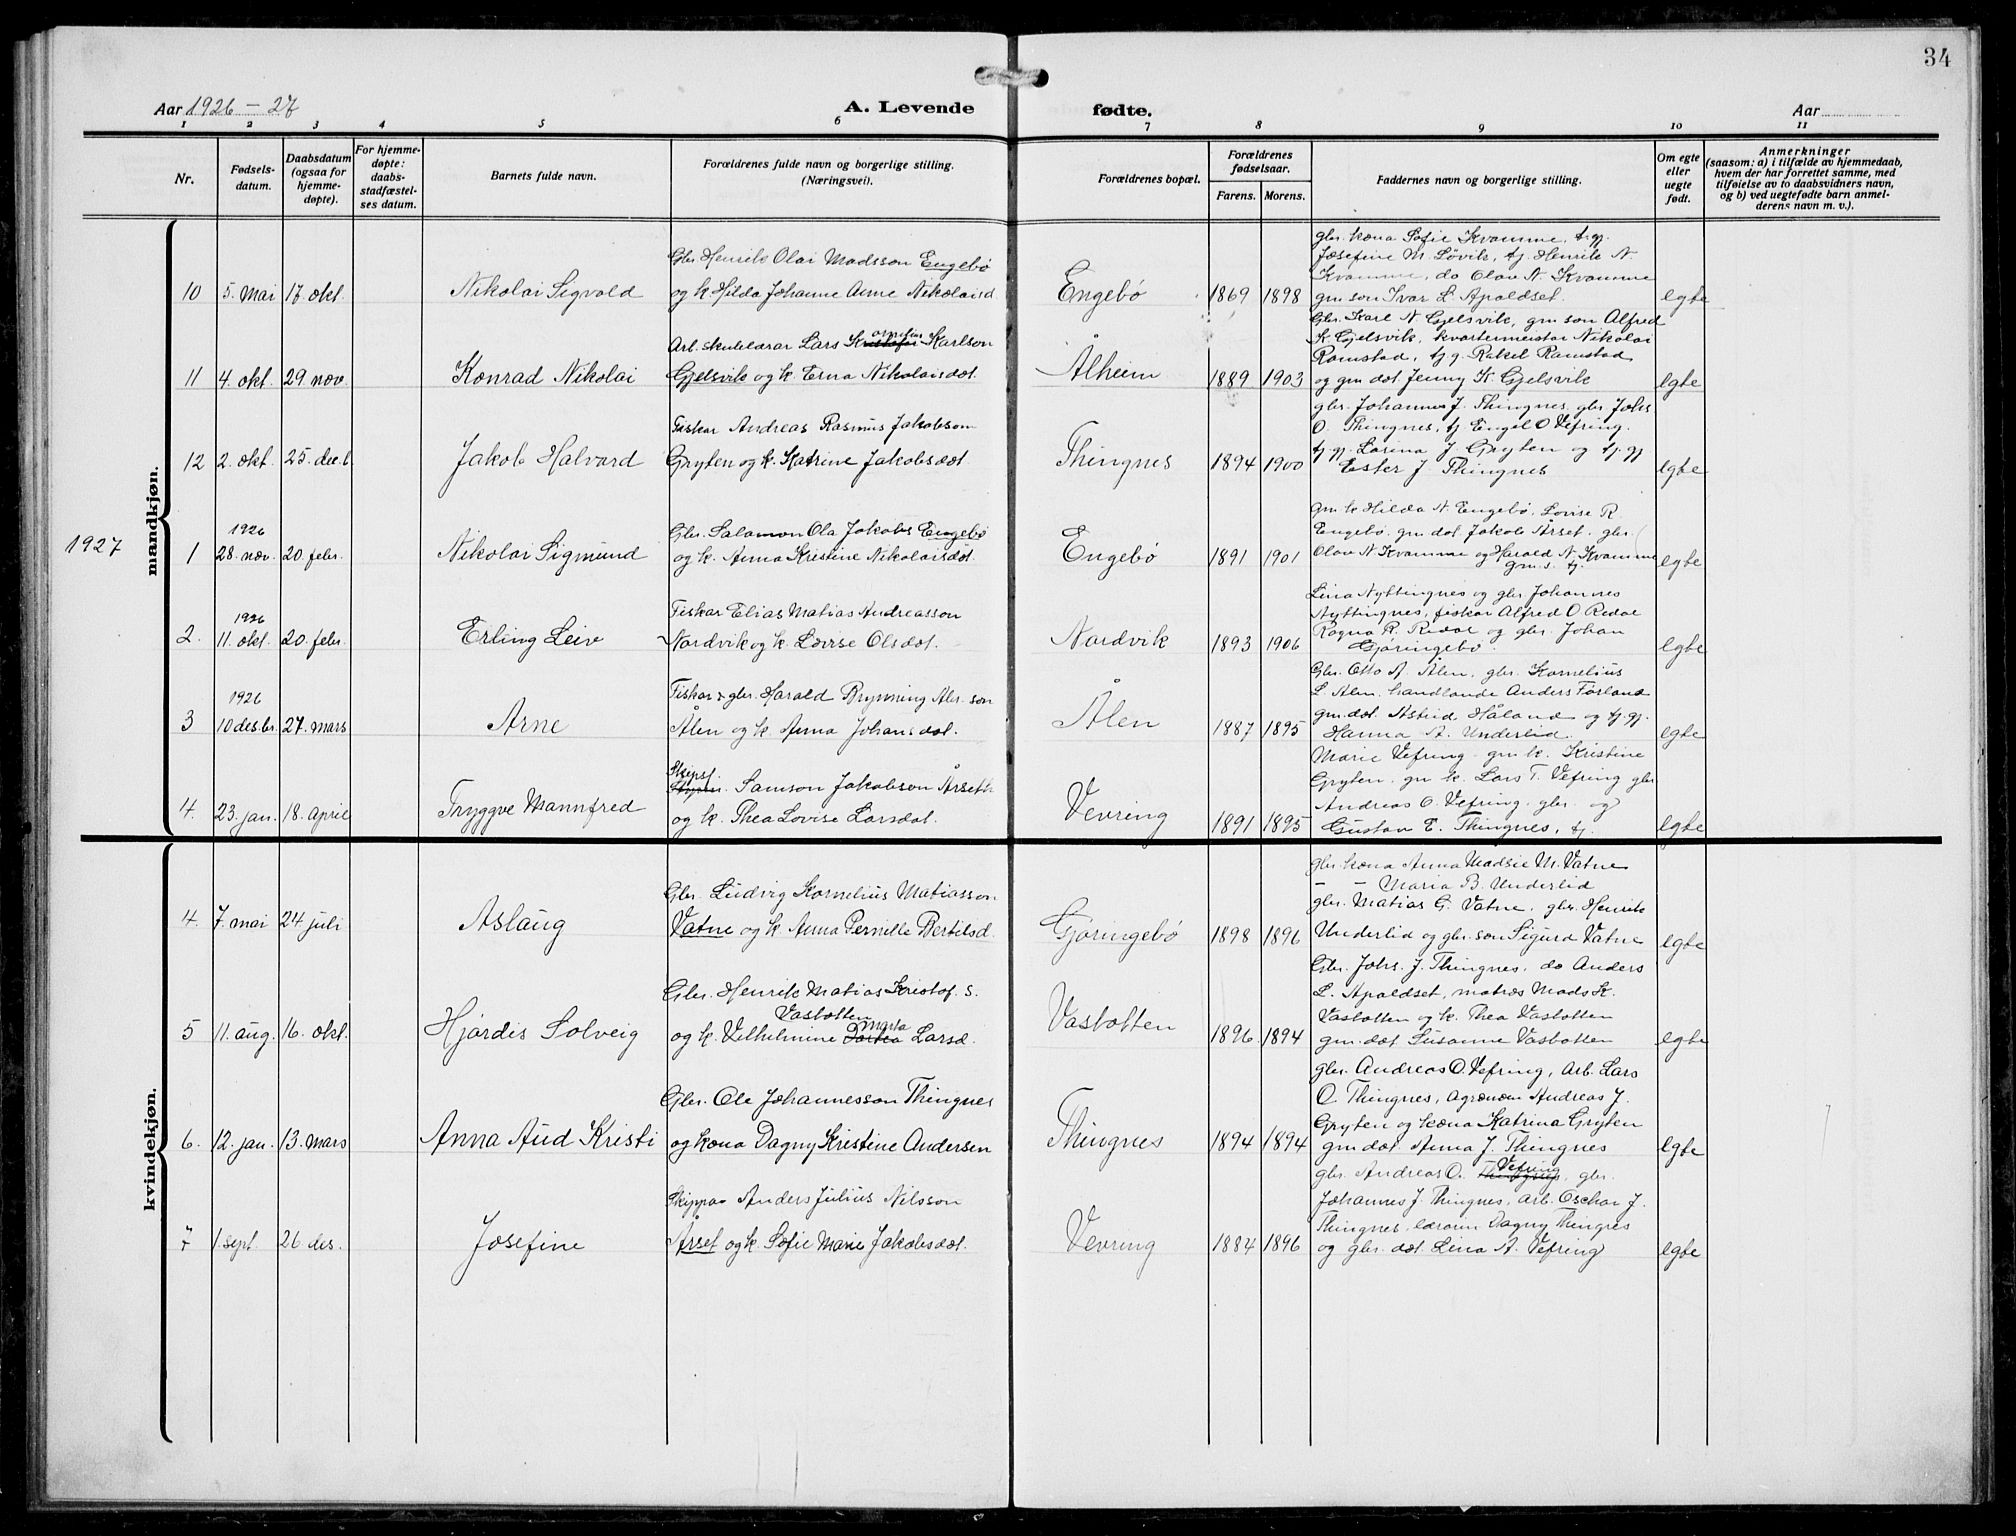 34
Aar 1926 - 27
A. Levende fødte.
Aar
1 2 3 4 5 6 7 8 9 10 11
Nr.
Fødsels-
datum.
Daabsdatum
(ogsaa for
hjemme-
døpte).
For hjemme-
døpte:
daabs-
stadfæstel-
ses datum.
Barnets fulde navn.
Forældrenes fulde navn og borgerlige stilling.
(Næringsvei).
Forældrenes bopæl.
Forældrenes
fødselsaar.
Farens. Morens.
Faddernes navn og borgerlige stilling.
Om egte
eller
uegte
født.
Anmerkninger
(saasom: a) i tilfælde av hjemmedaab,
hvem der har forrettet samme, med
tilføielse av to daabsvidners navn,
og b) ved uegtefødte barn anmel-
derens navn m. v.).
mandkjøn.
10 5. mai 17. okt. Nikolai Sigvald
Gbr. Henrik Olai Madsson Engebø
og k. Hilda Johanne Anne Nikolaisd.
Engebø 1869 1898
gbr. kona Sofie Kvamme, tj. gj.
Josefine M. Løvik, tj. Henrik N.
Kvamme, do Olav N. Kvamme
gm. son Ivar L. Apaldset.
egte
11 4. okt. 29 nov. Konrad Nikolai
Arb. skulelærar Lars Kornelius Karlson
Gjelsvik og k. Erna Nikolaisdot.
Ålheim 1889 1903
Gbr. Karl N. Gjelsvik, gm. son Alfred
K. Gjelsvik, kvartermeistar Nikolai
Ramstad, tj. g. Rakel Ramstad
og gm. dot. Jenny K. Gjelsvik
egte
12 2. okt. 25. des. Jakob Halvard
Fiskar Andreas Rasmus Jakobson
Gryten og k. Katrine Jakobsdot.
Thingnes 1894 1900
gbr. Johannes J. Thingnes, gbr. Johs.
O. Thingnes, tj. Engel O. Vefring.
tj. gj. Lorina J. Gryten og tj. gj.
Ester J. Thingnes
egte
1927
1 1926
28. nov. 20. febr. Nikolai Sigmund
Gbr. Salamon Ola Jakobs Engebø
og k. Anna Kristine Nikolaisdot.
Engebø 1891 1901
gm. k. Hilda N. Engebø, Lovise R.
Engebø. gm. dot. Jakob Årset. gbr.
Olav N. Kvamme og Harald N. Kvamme
gm. s. tj.
egte
2. 1926
11. okt. 20. febr. Erling Leiv
Fiskar Elias Matias Andreasson
Nordvik og k. Lovise Olsdot.
Nordvik 1893 1906
Lina Nyttingnes og gbr. Johannes
Nyttingnes, fiskar Alfred O. Redal
Ragna R. Redal og gbr. Johan
Gjøringebø.
egte
3 1926
10 des.br. 27. mars Arne
Fiskar & gbr. Harald Brynning Abr. son
Ålen og k. Anna Johansdot.
Ålen 1887 1895
Gbr. Otto A. Ålen, gbr. Kornelius
L. Ålen, handlande Anders Førland
gm. dot. Astrid Håland og tj. gj.
Hanna A. Underlid.
egte
4. 23. jan. 18. april Tryggve Mannfred
Skipsf. Samson Jakobson Årseth
og k. Thea Lovise Larsdot.
Vevring 1891 1895
Marie Vefring. gm. k. Kristine
Gryten. gm k. Lars T. Vefring gbr.
Andreas O. Vefring. gbr. og
Gustav E. Thingnes, tj.
egte
kvindekjøn.
4. 7. mai 24. juli Aslaug
Gbr. Ludvig Kornelius Matiasson
Vatne og k. Anna Pernille Bertilsd.
Gjøringebø 1898 1896
gbr. kona Anna Madsie M. Vatne
- - Maria B. Underlid
gbr. Matias G. Vatne. gbr. Henrik
Underlid og gbr. son Sigurd Vatne
egte
5 11. aug. 16. okt. Hjørdis Solveig
Gbr. Henrik Matias Kristof. s.
Vasbotten
og k. Vilhelmine Marta Larsd.
Vasbotten 1896 1894
Gbr. Johs. J. Thingnes, do Anders
L. Apaldset, matros Mads K.
Vasbotten og k. Thea Vasbotten
gm. dot. Susanne Vasbotten
egte
6. 12. jan. 13. mars Anna Aud Kristi
Gbr. Ole Johannesson Thingnes
og kona Dagny Kristine Andersen
Thingnes 1894 1894
gbr. Andreas O. Vefring, Arb. Lars
O. Thingnes, Agronom Andreas J.
Gryten og kona Katrina Gryten
gm. dot. Anna J. Thingnes
egte
7 1. sept. 26. des. Josefine
Skippar Anders Julius Nilsson
Årset og k. Sofie Marie Jakobsdot.
Vevring 1884 1896
gbr. Andreas O. Vefring, gbr.
Johannes J. Thingnes, arb. Oschar J.
Thingnes, lærarin Dagny Thingnes
og gbr. dot. Lina A. Vefring
egte